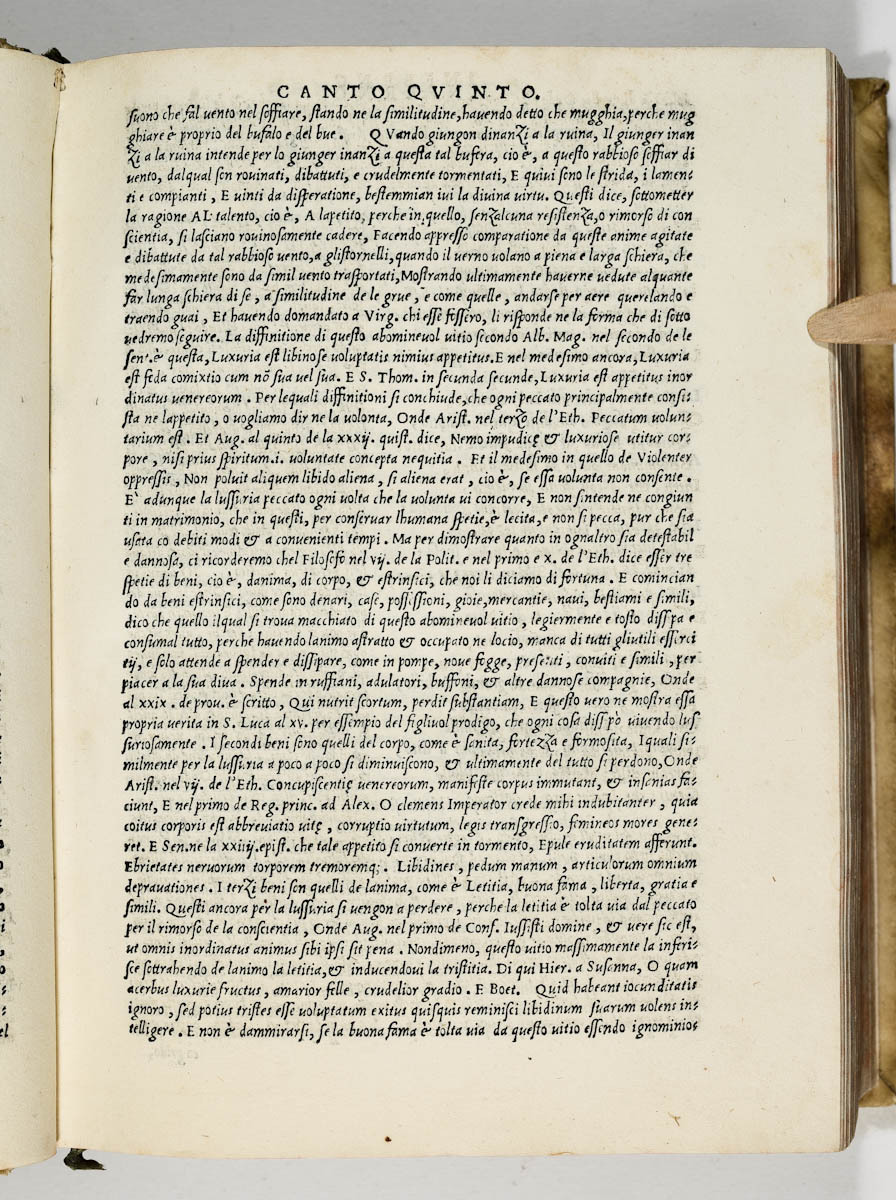 CANTO QVINTO.
ſuono che fal uento nel ſoffiare, ſtando ne la ſimilitudine, hauendo detto che mugghia, perche mug
ghiare è proprio del bufalo e del bue. QVando giungon dinanzi a la ruina, Il giunger inan
zi a la ruina intende per lo giunger inanzi a queſta tal bufera, cio è, a queſto rabbioſo ſoffiar di
uento, dalqual ſon rouinati, dibattuti, e crudelmente tormentati, E quiui ſono le ſtrida, i lamen-
ti e compianti, E uinti da diſperatione, beſtemmian iui la diuina uirtu. Queſti dice, ſottometter
la ragione AL talento, cio è, A lapetito, perche in quello, ſenzalcuna reſiſtenza, o rimorſo di con
ſcientia, ſi laſciano rouinoſamente cadere, Facendo appreſſo comparatione da queſte anime agitate
e dibattute da tal rabbioſo uento, a gliſtornelli, quando il uerno uolano a piena e larga ſchiera, che
medeſimamente ſono da ſimil uento traſportati, Moſtrando ultimamente hauerne uedute alquante
far lunga ſchiera di ſe, a ſimilitudine de le grue, e come quelle, andarſe per aere querelando e
traendo guai, Et hauendo domandato a Virg. chi eſſe foſſero, li riſponde ne la forma che di ſotto
uedremo ſeguire. La diffinitione di queſto abomineuol uitio ſecondo Alb. Mag. nel ſecondo de le
ſent. è queſta, Luxuria eſt libinoſe uoluptatis nimius appetitus. E nel medeſimo ancora, Luxuria
eſt feda comixtio cum nõ ſua uel ſua. E S. Thom. in ſecunda ſecunde, Luxuria eſt appetitus inor
dinatus uenereorum. Per lequali diffinitioni ſi conchiude, che ogni peccato principalmente conſi-
ſta ne lappetito, o uogliamo dir ne la uolonta, Onde Ariſt. nel terzo de l'Eth. Peccatum uolun-
tarium eſt. Et Aug. al quinto de la xxxij. quiſt. dice, Nemo impudicę & luxurioſe utitur cor-
pore, niſi prius ſpiritum .i. uoluntate concepta nequitia. Et il medeſimo in quello de Violenter
oppreſſis, Non poluit aliquem libido aliena, ſi aliena erat, cio è, ſe eſſa uolunta non conſente.
E' adunque la luſſuria peccato ogni uolta che la uolunta ui concorre, E non ſintende ne congiun
ti in matrimonio, che in queſti, per conſeruar lhumana ſpetie, è lecita, e non ſi pecca, pur che ſia
uſata co debiti modi & a conuenienti tempi. Ma per dimoſtrare quanto in ognaltro ſia deteſtabil
e dannoſa, ci ricorderemo chel Filoſofo nel vij. de la Polit. e nel primo e x. de l'Eth. dice eſſer tre
ſpetie di beni, cio è, danima, di corpo, & eſtrinſici, che noi li diciamo di fortuna. E comincian
do da beni eſtrinſici, come ſono denari, caſe, poſſiſſioni, gioie, mercantie, naui, beſtiami e ſimili,
dico che quello ilqual ſi troua macchiato di queſto abomineuol uitio, legiermente e toſto diſſipa e
conſumal tutto, perche hauendo lanimo aſtratto & occupato ne locio, manca di tutti gliutili eſſerci
tij, e ſolo attende a ſpender e diſſipare, come in pompe, noue fogge, preſenti, conuiti e ſimili, per
piacer a la ſua diua. Spende in ruffiani, adulatori, buffoni, & altre dannoſe compagnie, Onde
al xxix. de prou. è ſcritto, Qui nutrit ſcortum, perdit ſubſtantiam, E queſto uero ne moſtra eſſa
propria uerita in S. Luca al xv. per eſſempio del figliuol prodigo, che ogni coſa diſſipò uiuendo luſ
ſurioſamente. I ſecondi beni ſono quelli del corpo, come è ſanita, fortezza e formoſita, I quali ſi-
milmente per la luſſuria a poco a poco ſi diminuiſcono, & ultimamente del tutto ſi perdono, Onde
Ariſt. nel vij. de l'Eth. Concupiſcentię uenereorum, manifeſte corpus immutant, & inſanias fa-
ciunt, E nel primo de Reg. princ. ad Alex. O clemens Imperator crede mihi indubitanter, quia
coitus corporis eſt abbreuiatio uitę, corruptio uirtutum, legis tranſgreſſio, femineos mores gene-
ret. E Sen. ne la xxiiij. epiſt. che tale appetito ſi conuerte in tormento, Epule eruditatem afferunt.
Ebrietates neruorum torporem tremoremq;. Libidines, pedum manum, articulorum omnium
deprauationes. I terzi beni ſon quelli de lanima, come è Letitia, buona fama, liberta, gratia e
ſimili. Queſti ancora per la luſſuria ſi uengon a perdere, perche la letitia è tolta uia dal peccato
per il rimorſo de la conſcientia, Onde Aug. nel primo de Conf. Iuſſiſti domine, & uere ſic eſt,
ut omnis inordinatus animus ſibi ipſi ſit pena. Nondimeno, queſto uitio maſſimamente la inferi-
ſce ſottrahendo de lanimo la letitia, & inducendoui la triſtitia. Di qui Hier. a Suſanna, O quam
acerbus luxurie fructus, amarior felle, crudelior gradio. E Boet. Quid habeant iocunditatis
ignoro, ſed potius triſtes eſſe uoluptatum exitus quiſquis reminiſci libidinum ſuarum uolens in-
telligere. E non è dammirarſi, ſe la buona fama è tolta uia da queſto uitio eſſendo ignominio-